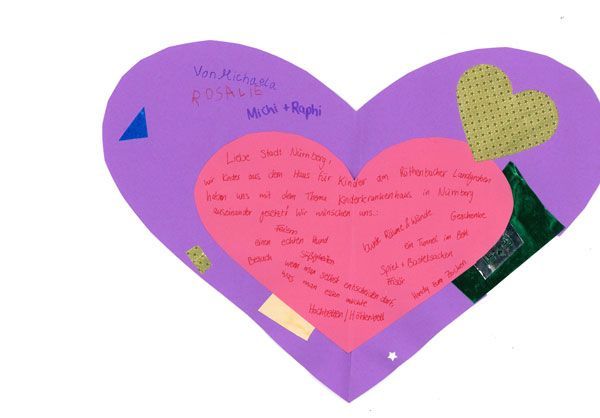 Von Michaela
ROSALIE
Michi + Raphi
Liebe Stadt Nürnberg!
wir Kinder aus dem Haus für Kinder am Röthenbacher Landgraben
haben uns mit dem Thema Kinderkrankenhaus in Nürnberg
auseinander gesetzt! Wir wünschen uns.:
Feiern
einen echten Hund
Besuch Süßigkeiten
wenn man selbst entscheiden darf,
was man essen möchte
Hochbetten / Höhlenbett
bunte Räume & Wände Geschenke
ein Tunnel im Bett
Spiel + Bastelsachen
Handy zum Zocken